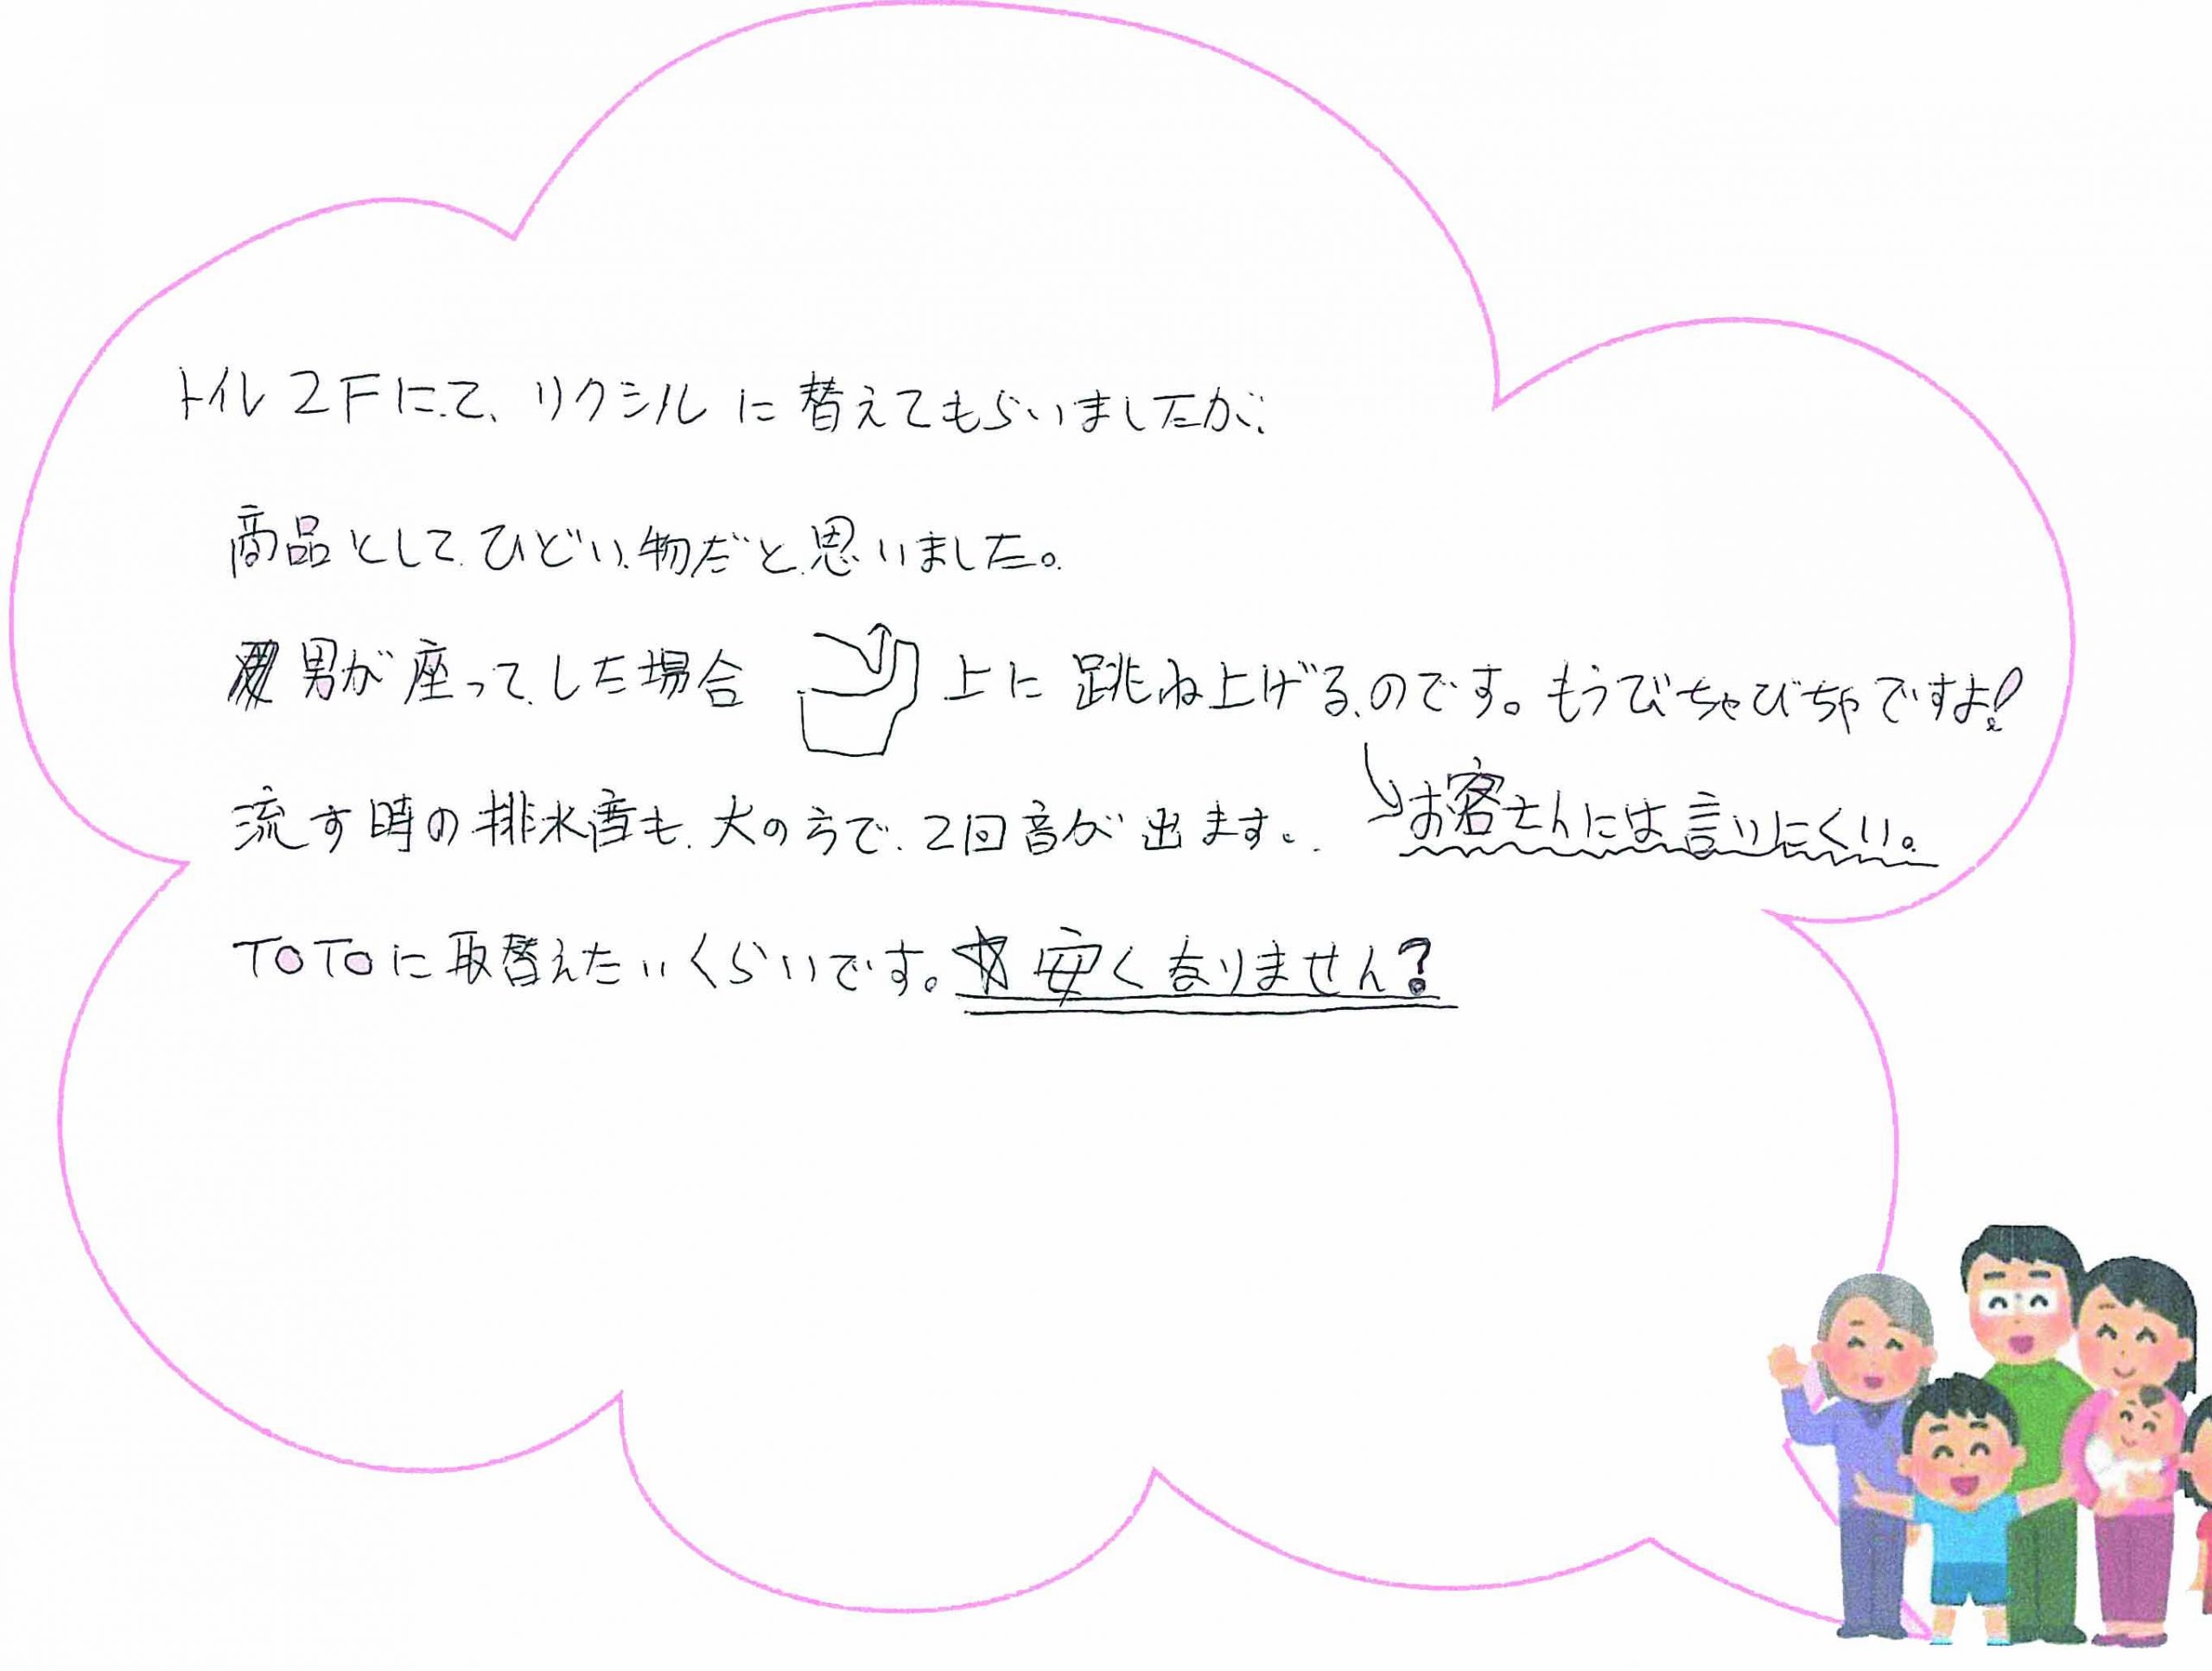 トイレ2Fにて、リクシルに替えてもらいましたが、
商品としてひどい物だと思いました。
男が座ってした場合 上に跳ね上げるのです。もうびちゃびちゃですよ!
流す時の排水音も、大の方で、2回音が出ます。 お客さんには言いにくい。
TOTOに取替えたいくらいです。安くなりません?